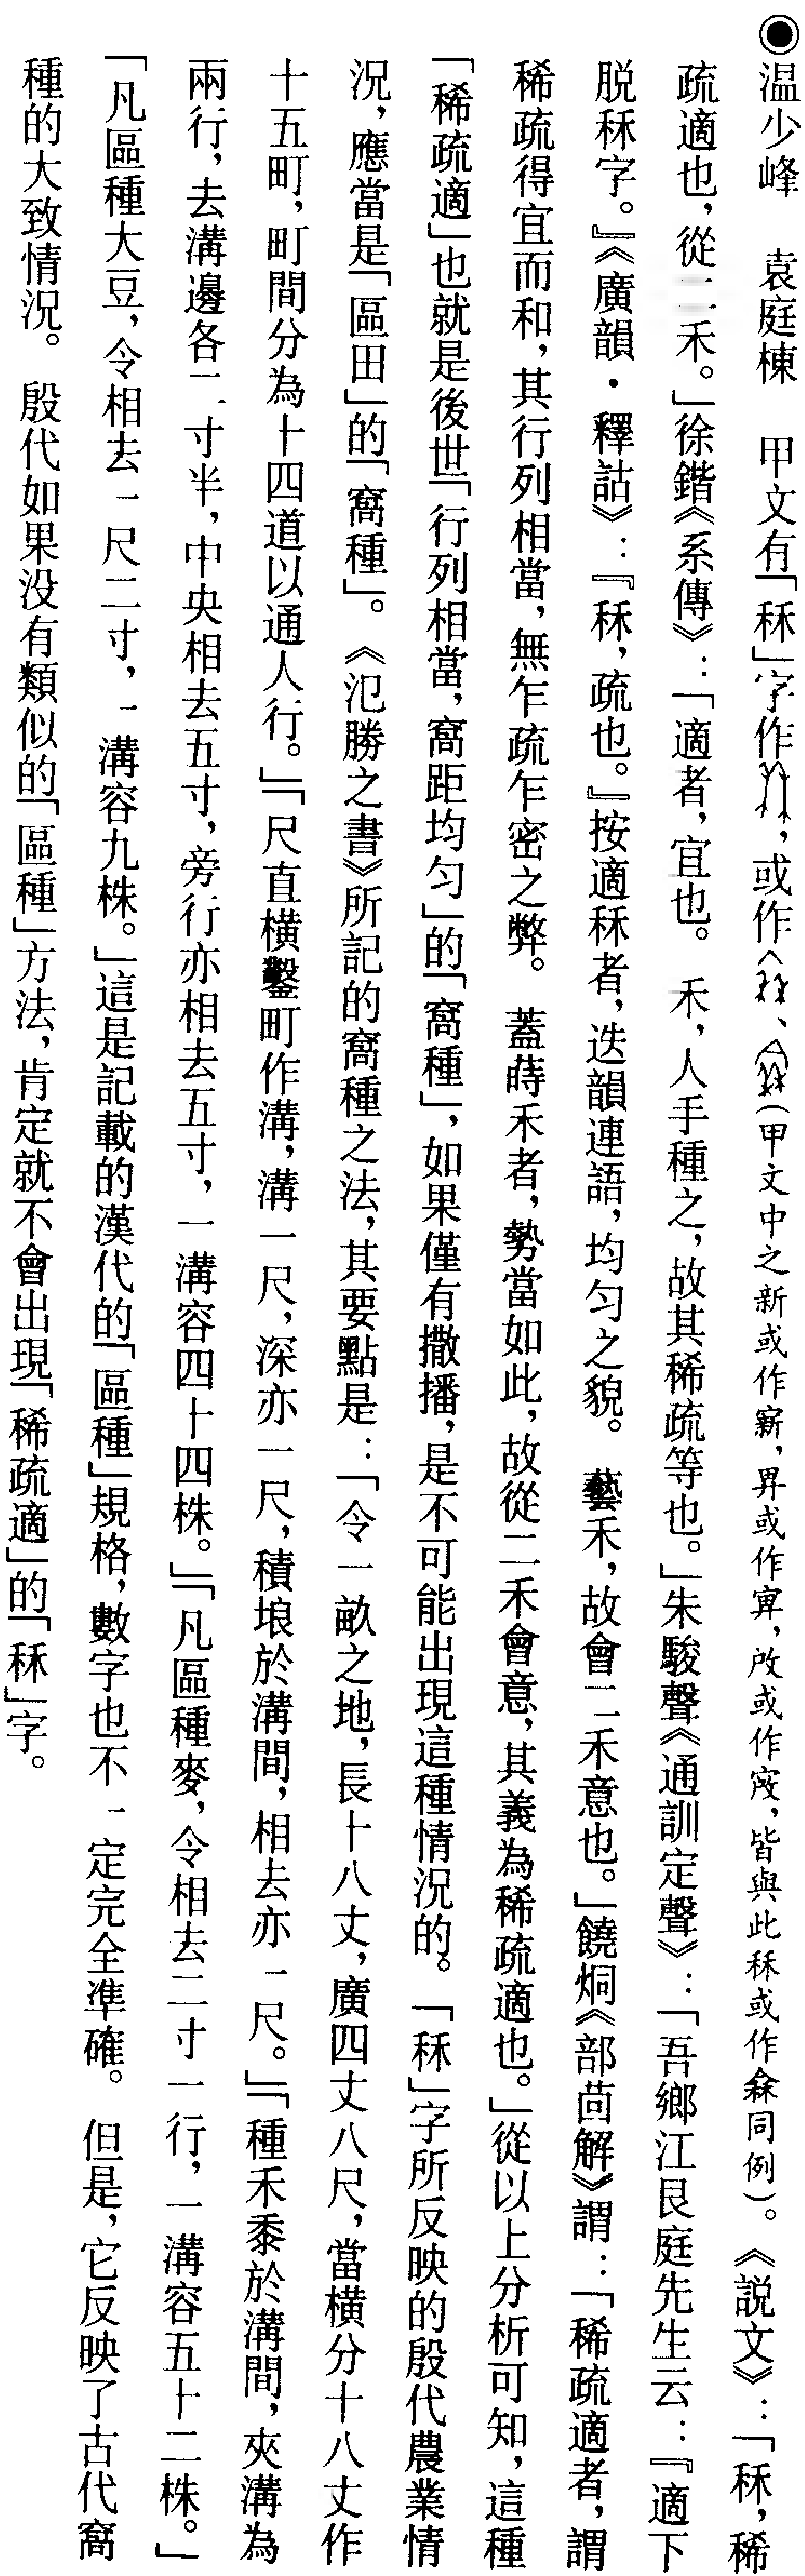 ◉温少峰　袁庭棟　甲文有「秝」字作，或作、（甲文中之新或作寴，昇或作寎，啟或作𡪄，皆與此秝或作𥝢同例）。《説文》：「秝，稀
疏適也，從二禾。」徐鍇《系傳》：「適者，宜也。　禾，人手種之，故其稀疏等也。」朱駿聲《通訓定聲》：「吾鄉江艮庭先生云：『適下
脱秝字。』《廣韻·釋詁》：『秝，疏也。』按適秝者，迭韻連語，均匀之貌。　藝禾，故會二禾意也。」饒炯《部茴解》謂：「稀疏適者，謂
稀疏得宜而和，其行列相當，無乍疏乍密之弊。　蓋蒔禾者，勢當如此，故從二禾會意，其義為稀疏適也。」從以上分析可知，這種
「稀疏適」也就是後世「行列相當，窩距均匀」的「窩種」，如果僅有撒播，是不可能出現這種情況的。　「秝」字所反映的殷代農業情
況，應當是「區田」的「窩種」。　《氾勝之書》所記的窩種之法，其要點是：「令一畝之地，長十八丈，廣四丈八尺，當横分十八丈作
十五町，町間分為十四道以通人行。」「尺直横鑿町作溝，溝一尺，深亦一尺，積埌於溝間，相去亦一尺。」「種禾黍於溝間，夾溝為
兩行，去溝邊各二寸半，中央相去五寸，旁行亦相去五寸，一溝容四十四株。」「凡區種麥，令相去二寸一行，一溝容五十二株。」
「凡區種大豆，令相去一尺二寸，一溝容九株。」這是記載的漢代的「區種」規格，數字也不一定完全準確。　但是，它反映了古代窩
種的大致情況。　殷代如果没有類似的「區種」方法，肯定就不會出現「稀疏適」的「秝」字。